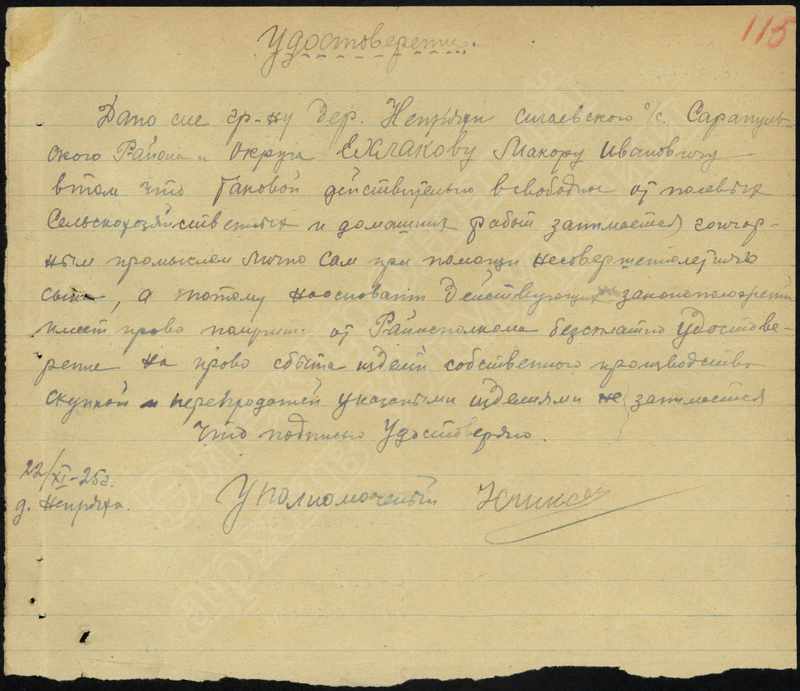 115
Удостоверение.
Дано сие гр-ну дер. Непряхи сигаевского с/с. Сарапуль-
ского Района и округа ЕХЛАКОВУ Макару Ивановичу
в том что таковой действительно в свободное от полевых
Сельскохозяйственных и домашних работ занимается гончар-
ным промыслом лично сам при помощи несовершеннолетнего
сына, а потому наосновании действующих законоположений
имеет право получить от Райисполкома бесплатно Удостове-
рение на право сбыта изделий собственного производства
скупкой и перепродажей указанными изделиями не занимается
Что подписью Удостоверяю.
22/XI-25г.
д. Непряха.
Уполномоченный